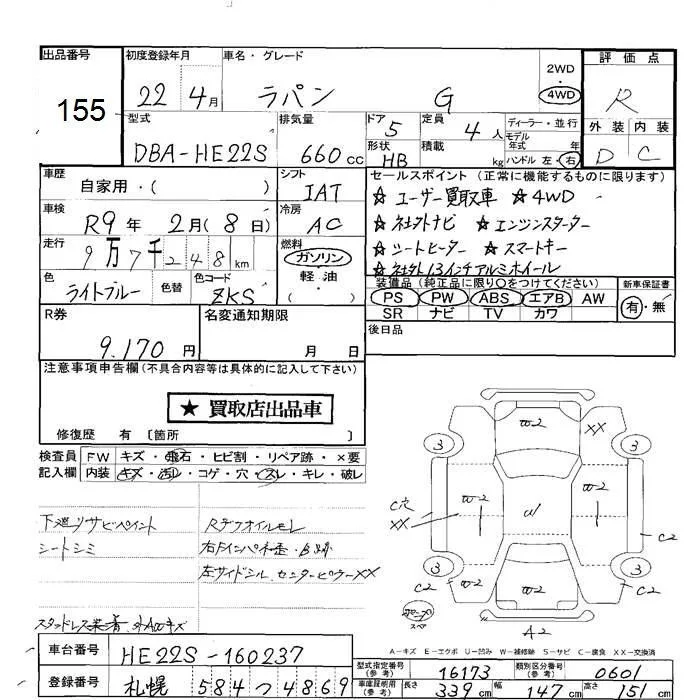 出品番号 155
初度登録年月 22年 4月
車名・グレード ラパン G
2WD・4WD
評価点 R
外装 D 内装 C
型式 DBA-HE22S
排気量 660cc
ドア 5
定員 4人
形状 HB
積載 kg
ディーラー・並行
モデル年式 年
ハンドル 左・右
車歴 自家用・( )
シフト IAT
セールスポイント (正常に機能するものに限ります)
★ ユーザー買取車 ★ 4WD
★ 社外ナビ ★ エンジンスターター
★ シートヒーター ★ スマートキー
★ 社外13インチアルミホイール
車検 R9年 2月(8日)
冷房 AC
走行 9万7千248km
燃料 ガソリン
軽油
( ・ )
色 ライトブルー
色替
色コード ZKS
装備品 (純正品に限り○をつけてください)
PS PW ABS エアB AW
SR ナビ TV カワ
新車保証書 有・無
R券 9,170円
名変通知期限 月 日
後日品
注意事項申告欄 (不具合内容等は具体的に記入して下さい)
★ 買取店出品車
修復歴 有 〔箇所 〕
検査員記入欄
FW キズ・飛石・ヒビ割・リペア跡・×要
内装 キズ・汚レ・コゲ・穴・スレ・キレ・破レ
下廻りサビペイント
シートシミ
Rデフオイルモレ
左サイドシル、センターピラーXX
W-2
XX
3
3
C穴
XX
W-2
U1
W-2
C2
3
3
C2
W-2
W-2
C2
スペア
A2
A－キズ E－エクボ U－凹み W－補修跡 S－サビ C－腐食 XX－交換済
車台番号 HE22S-160237
登録番号 札幌 584 つ 4869
型式指定番号(参考) 16173
類別区分番号(参考) 0601
車庫証明用(参考) 長さ 339cm 幅 147cm 高さ 151cm